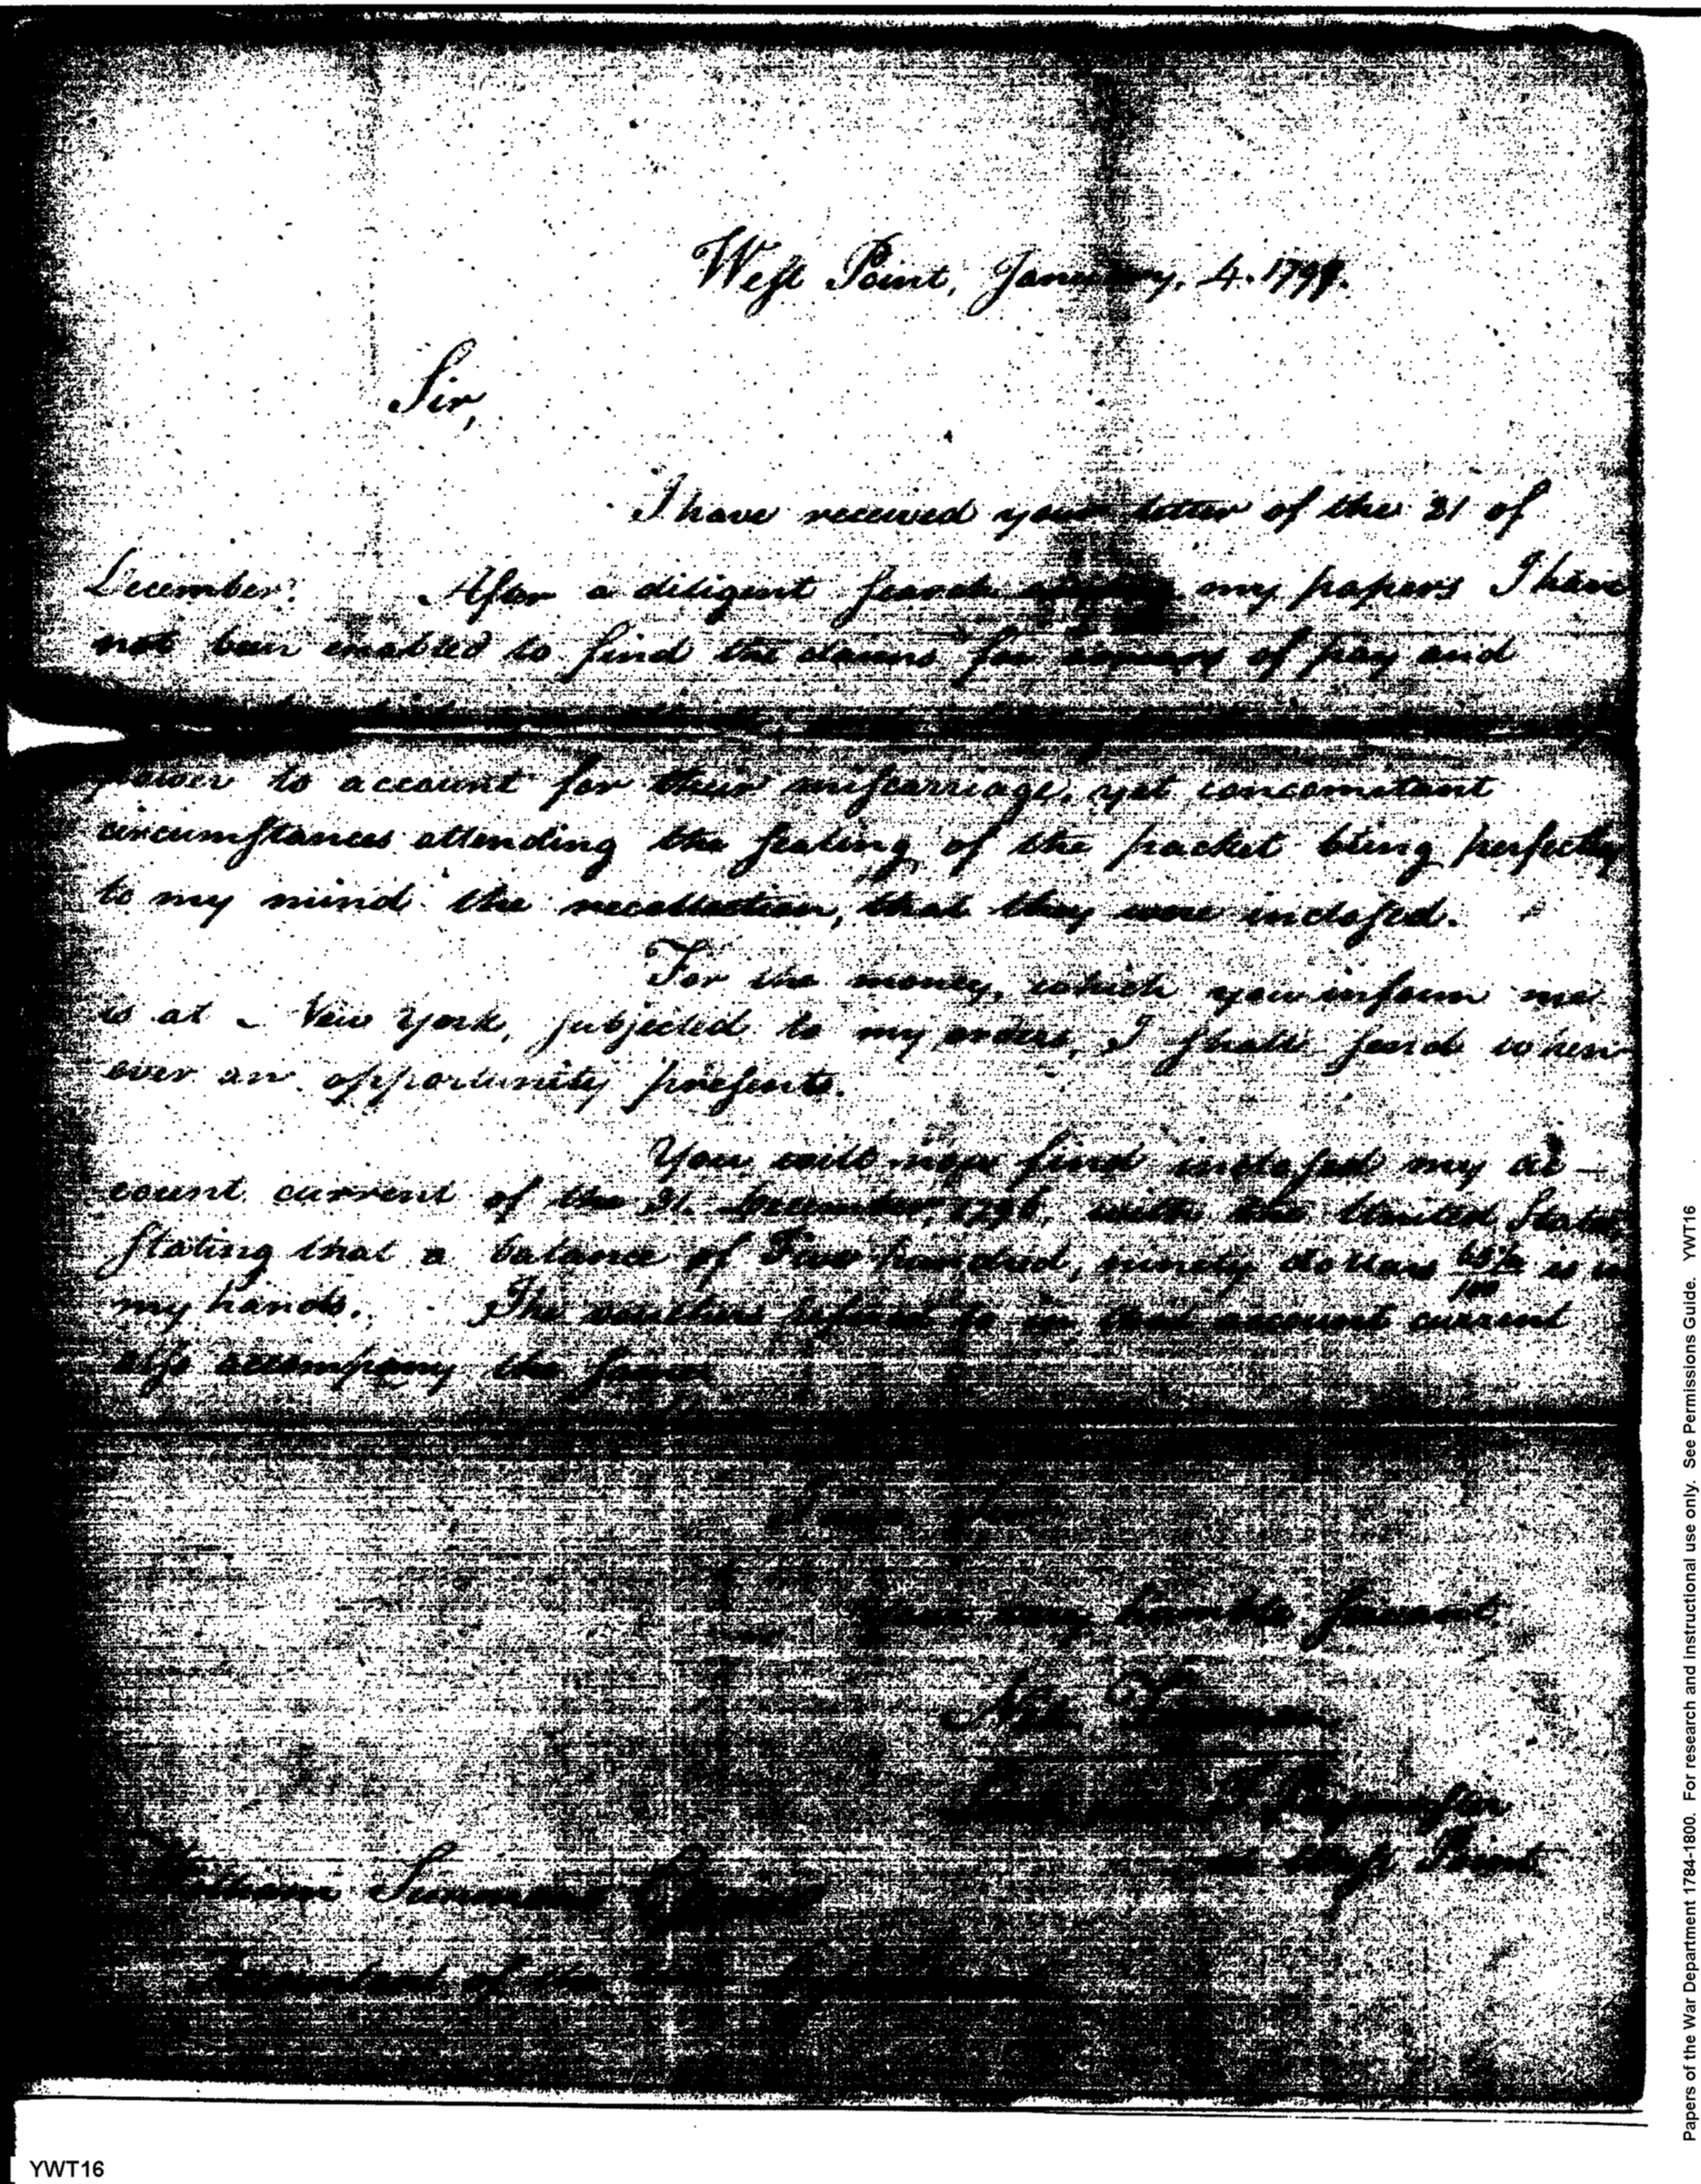 West Point, January, 4. 1799.
Sir,
I have received your letter of the 21 of
December. After a diligent search among my papers I have
not been enabled to find the claims for arrears of pay and
power to account for their miscarriage, yet concomitant
circumstances attending the sealing of the packet bring perfectly
to my mind the recollection, that they were inclosed.
For the money, which you inform me
is at New York, subjected to my orders, I shall send when
ever an opportunity presents.
You will now find inclosed my ac-
count current of the 31. December, 1798, with the United States,
Stating that a balance of hundred, ninety dollars is in
my hands. The vouchers refered to in that account current
also accompany the same
I am Sir
Your very humble servant,
Paymaster
at West Point
William Simmons Esquire
Accountant of the War Department
Papers of the War Department 1784-1800. For research and instructional use only. See Permissions Guide. YWT16
YWT16